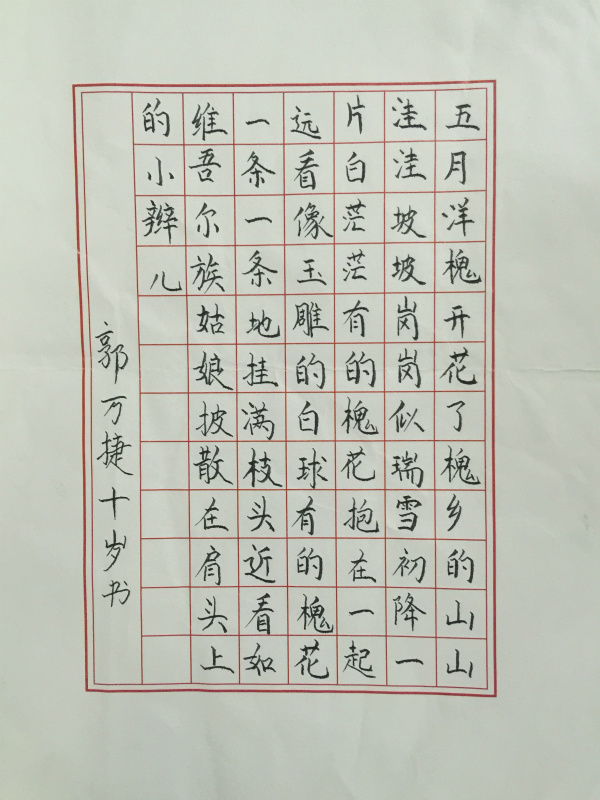 五月洋槐开花了槐乡的山山
洼洼坡坡岗岗似瑞雪初降一
片白茫茫有的槐花抱在一起
远看像玉雕的白球有的槐花
一条一条地挂满枝头近看如
维吾尔族姑娘披散在肩头上
的小辫儿
郭万捷十岁书